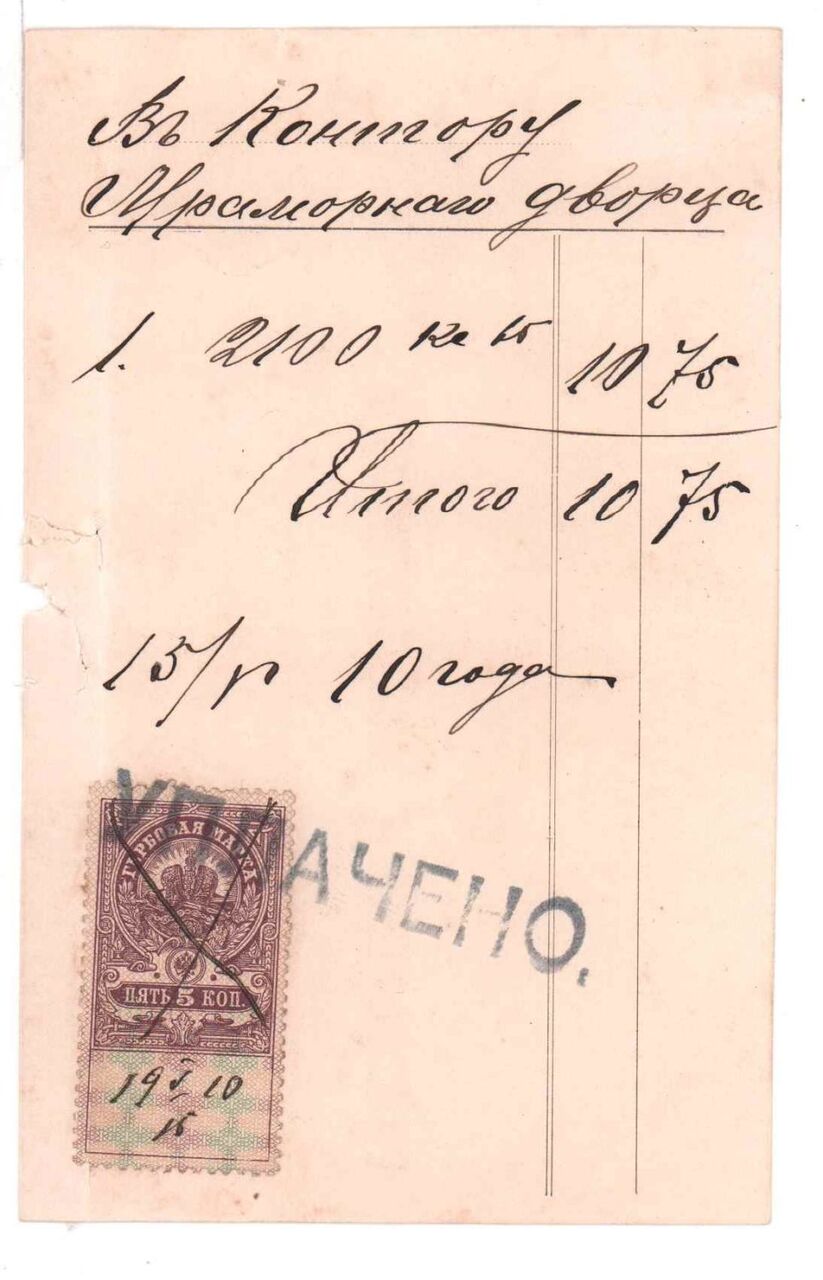 Въ Контору
Мраморнаго дворца
1. 2100 10 75
Итого 10 75
15/ 10 года
УПЛАЧЕНО.
ГЕРБОВАЯ МАРКА
ПЯТЬ 5 КОП.
19 I 10
15